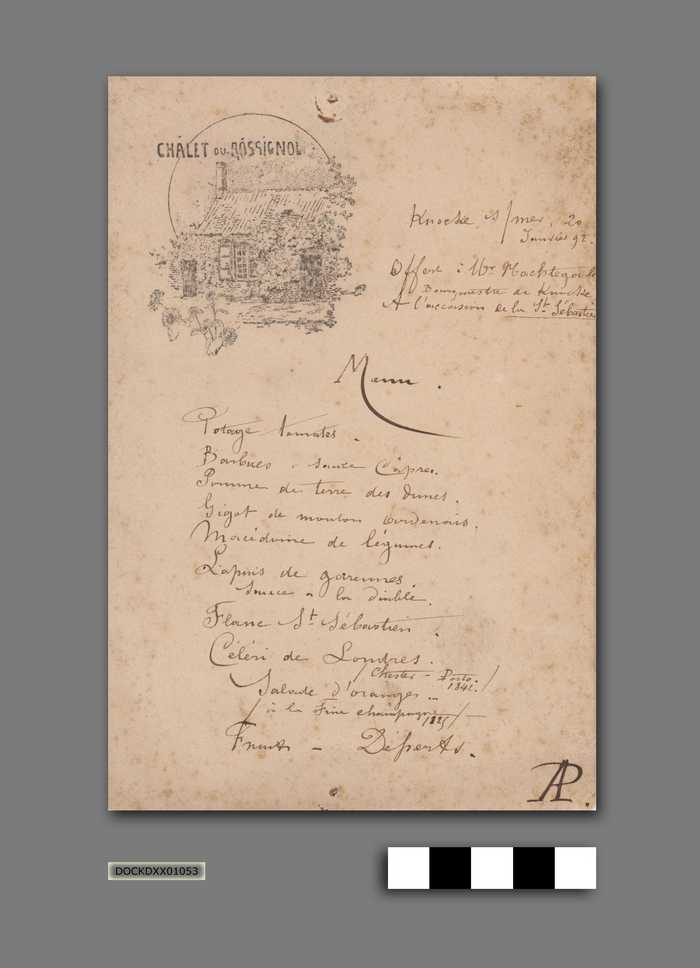 CHALET DU ROSSIGNOL
Knocke s/mer, 20
Janvier 92.
Offert à Mr
Bourgmestre de Knocke
A l'occasion de la St Sébastien
Menu.
Potage tomates.
Barbues, sauce Câpres.
Pomme de terre des dunes.
Gigot de mouton ardenais.
Macédoine de légumes.
Lapins de garennes.
Sauce a la diable.
Flanc St Sébastien.
Céléri de Londres.
/Chester - Porto. 1842./
Salade d'oranges -
/à la Fine champagne 1825/-
Fruits - Desserts.
AP.
DOCKDXX01053